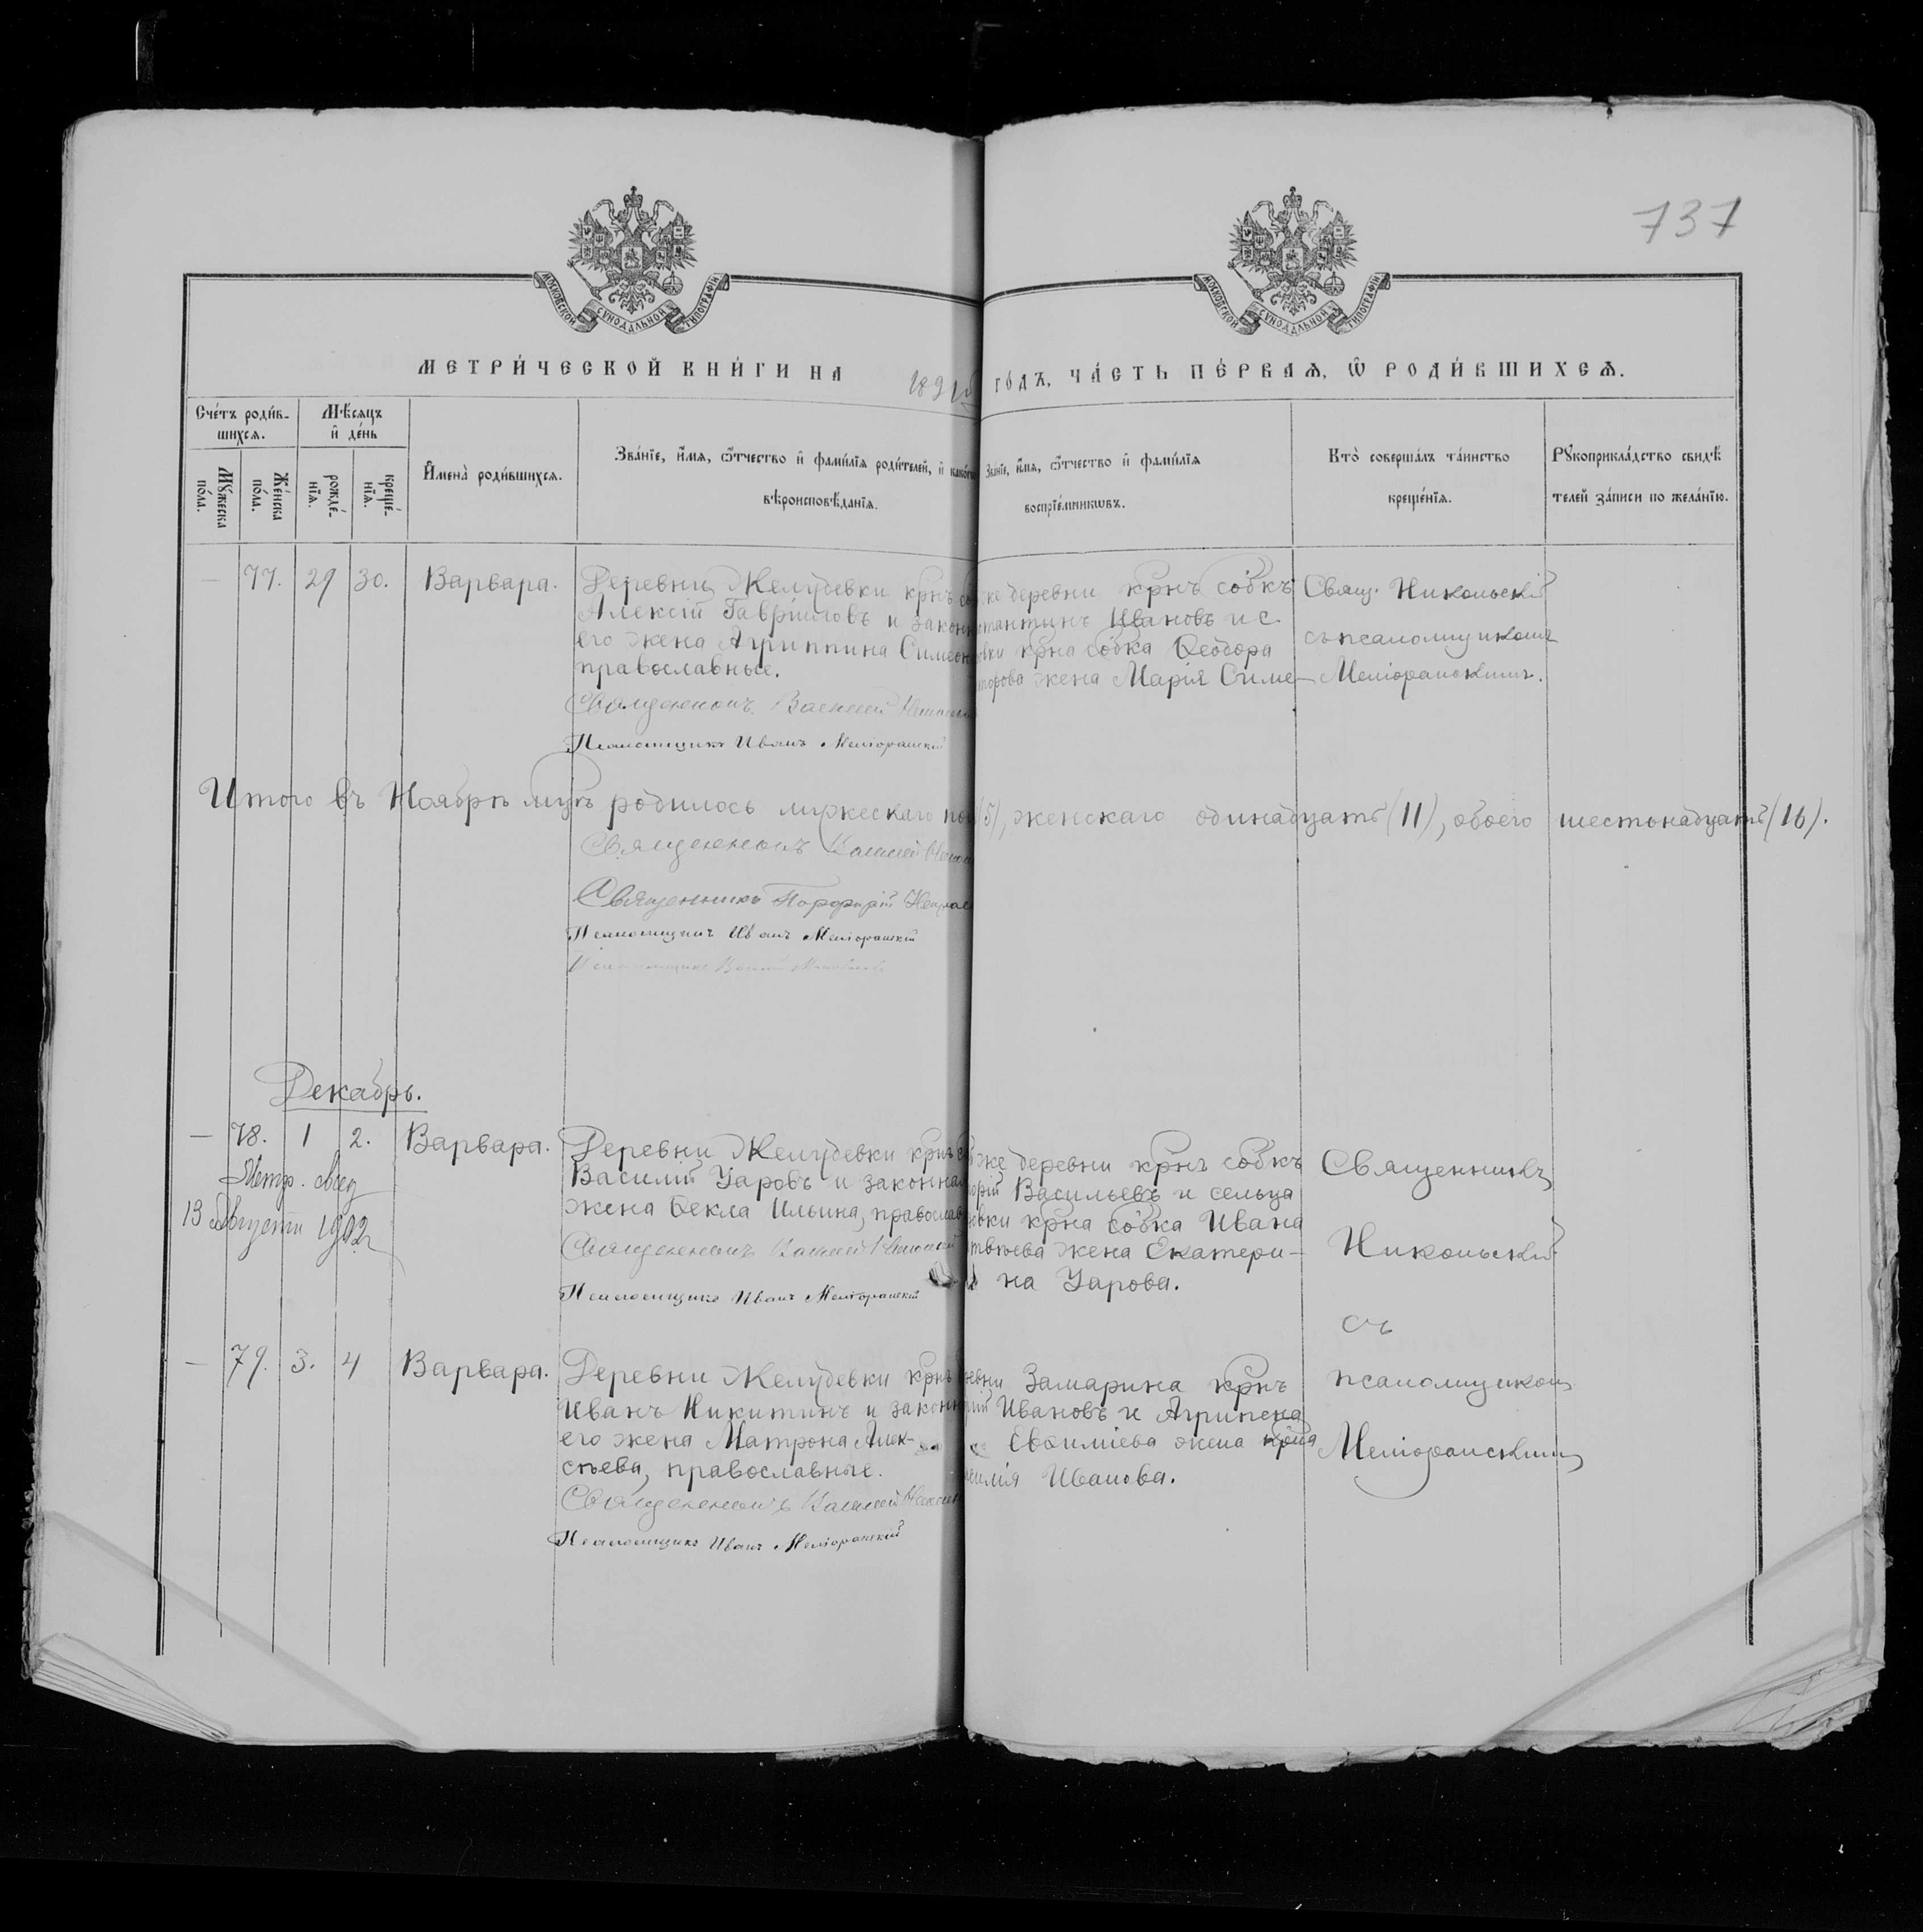 737
МОСКОВСКОЙ СѴНОДАЛЬНОЙ ТИПОГРАФІИ
МОСКОВСКОЙ СѴНОДАЛЬНОЙ ТИПОГРАФІИ
МЕТРИ́ЧЕСКОЙ КНИ́ГИ НА
ГО́ДЪ, ЧА́СТЬ ПЕ́РВАѦ, Ѡ҆ РОДИ́ВШИХСѦ.
Сче́тъ роди́в-
шихсѧ.
Мѣ́сѧцъ
и҆ де́нь
Мꙋ́жеска
по́ла.
Же́нска
по́ла.
рожде́-
нїѧ.
креще́-
нїѧ.
И҆мена̀ роди́вшихсѧ.
Зва́нїе, и҆́мѧ, ѻ҆́тчество и҆ фами́лїѧ роди́телей, и҆
вѣроисповѣ́данїѧ.
Зва́нїе, и҆́мѧ, ѻ҆́тчество и҆ фами́лїѧ
воспрїе́мникѡвъ.
Кто̀ соверша́лъ та́инство
креще́нїѧ.
Рꙋкоприкла́дство свидѣ́
телей за́писи по жела́нїю.
— 77. 29 30. Варвара.
Деревни Желудевки крнъ
Алексій Гавріиловъ и законн
его жена Агриппина Симеон
православные.
Священникъ Василий
Псаломщикъ Иванъ Меліоранскій
же деревни крнъ собкъ
Ивановъ и с.
крна собка Ѳеодора
жена Марія Симе-
Свящ. Никольскій
съ псаломщикомъ
Меліоранскимъ.
Итого въ Ноябрѣ мцѣ родилось мужескаго (5), женскаго одинадцать (11), обоего шестьнадцать (16).
Священникъ Василий
Священникъ Порфирій
Псаломщикъ Иванъ Меліоранскій
Псаломщикъ
Декабрь.
— 78. 1 2. Варвара.
Метр. свид
13 Августа 1912 г
Деревни Желудевки крнъ
Василій Уаровъ и законная
жена Ѳекла Ильина, православ
Священникъ Василий
Псаломщикъ Иванъ Меліоранскій
же деревни крнъ собкъ
Васильевъ и сельца
крна собка Ивана
жена Екатери-
на Уарова.
Священникъ
Никольскій
съ
псаломщикомъ
Меліоранскимъ
— 79. 3. 4 Варвара.
Деревни Желудевки крнъ
Иванъ Никитинъ и законн
его жена Матрона Алек-
сѣева, православные.
Священникъ Василий
Псаломщикъ Иванъ Меліоранскій
Замарина крнъ
Ивановъ и Агрипена
Евѳиміева жена крна
Иванова.